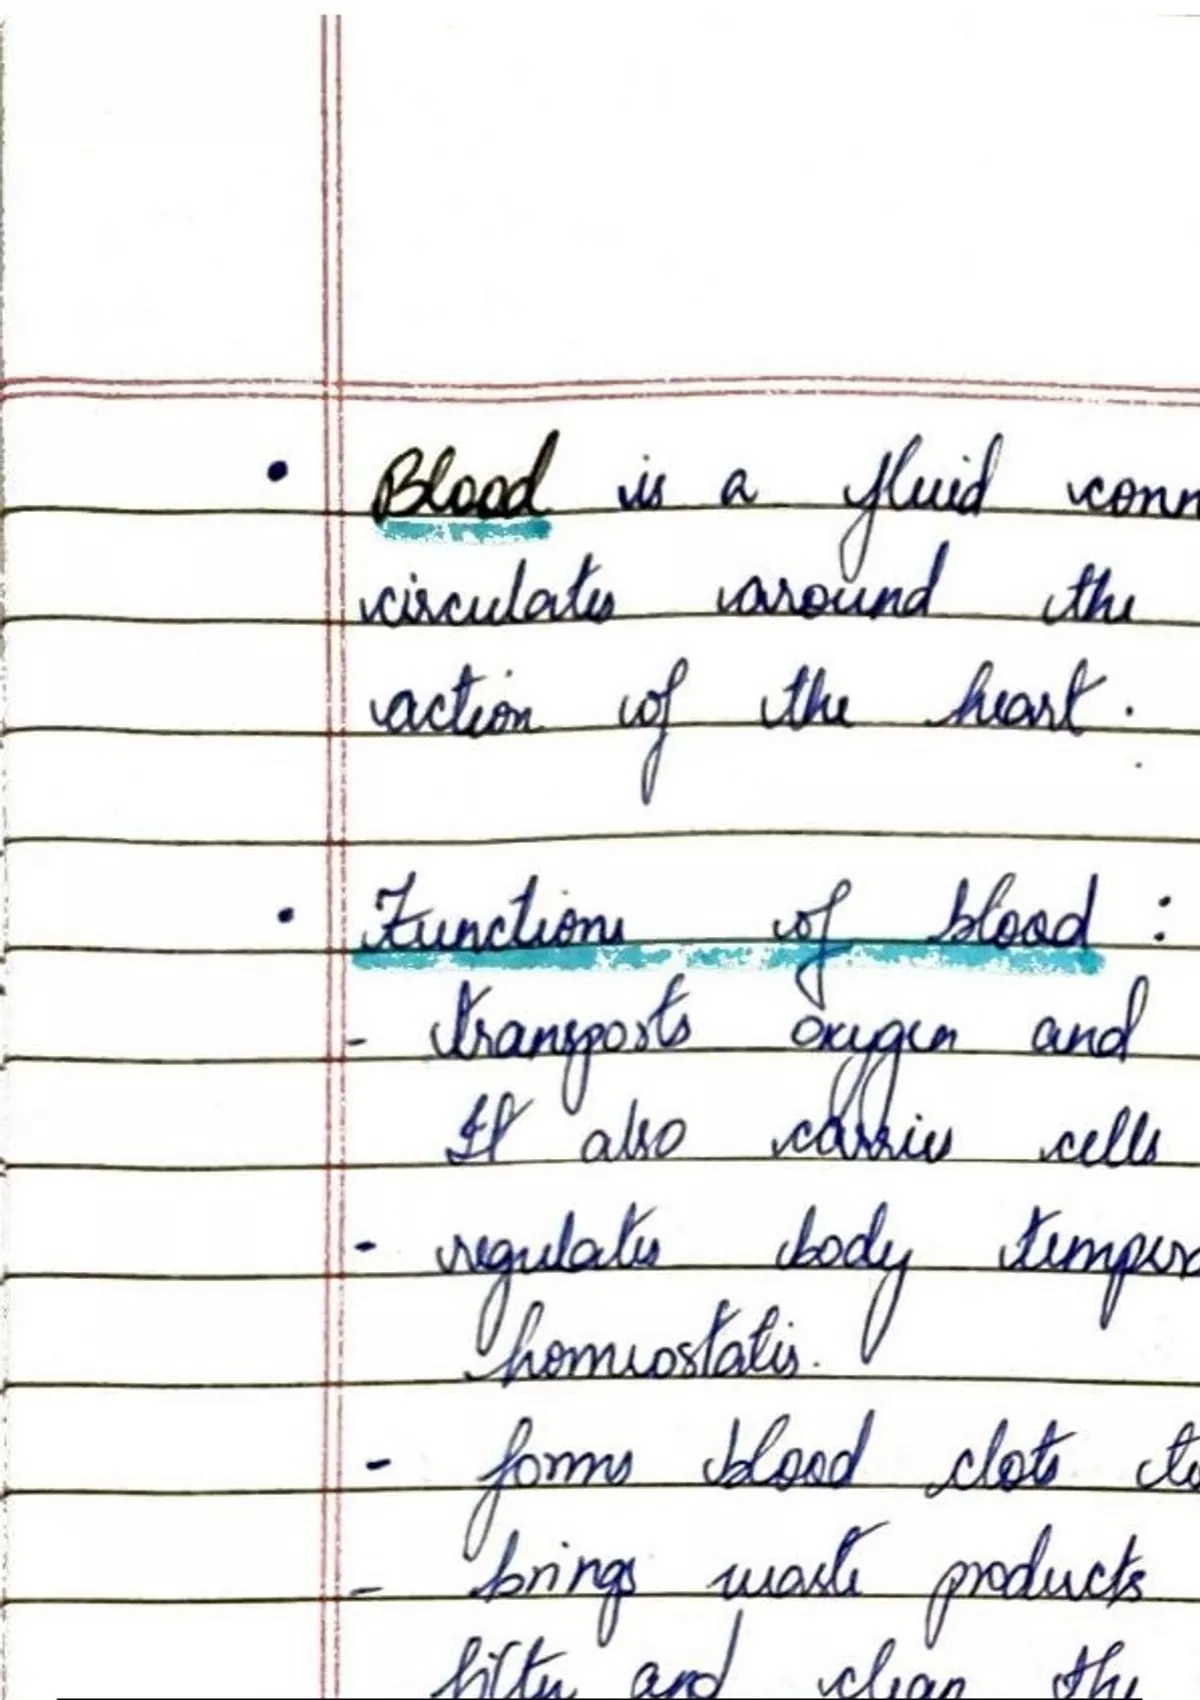 • Blood is a fluid conn
circulates around the
action of the heart.
• Functions of blood :
- transports oxygen and
It also carries cells
- regulates body tempera
homeostatis.
- forms blood clots to
- brings waste products
filter and clean the